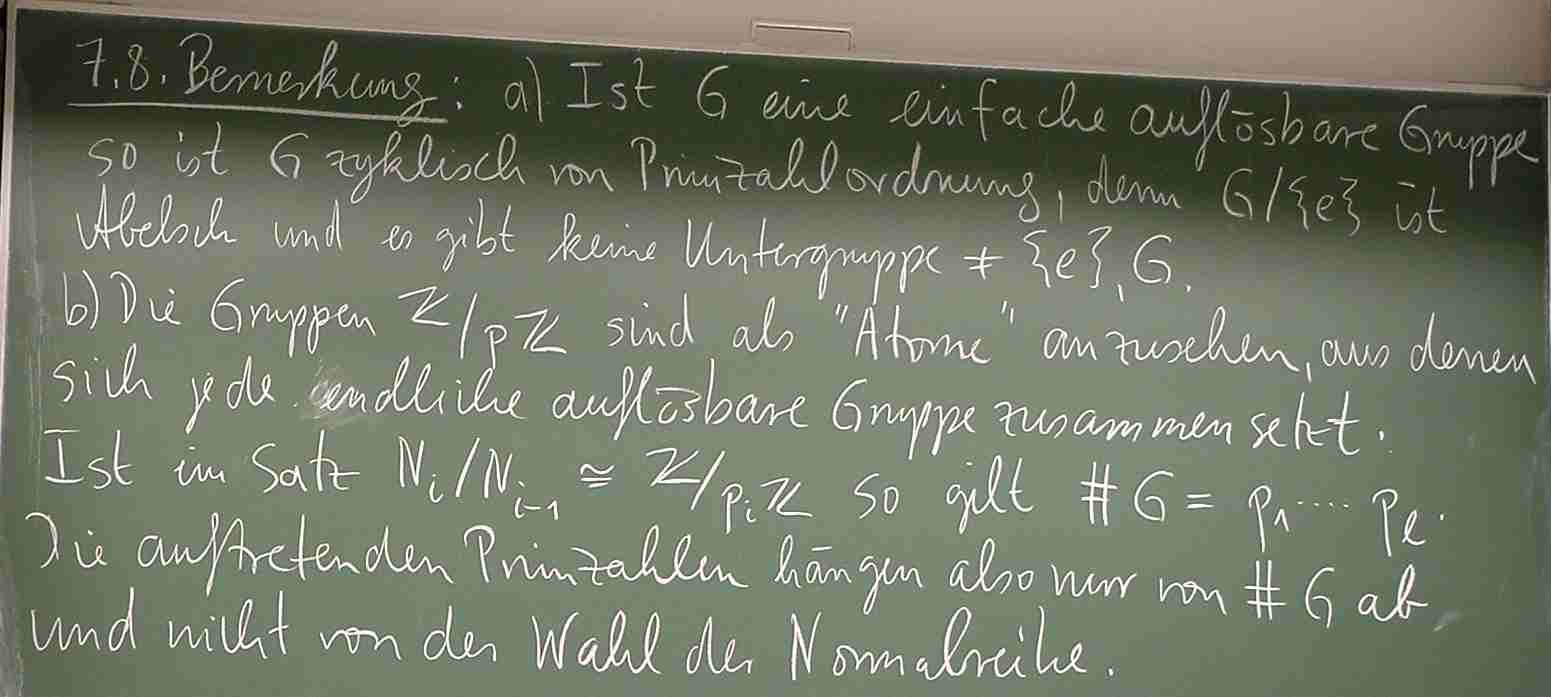 7.8. Bemerkung: a) Ist G eine einfache auflösbare Gruppe
so ist G zyklisch von Primzahlordnung, denn G/{e} ist
Abelsch und es gibt keine Untergruppe ≠ {e}, G.
b) Die Gruppen ℤ/pℤ sind als "Atome" anzusehen, aus denen
sich jede endliche auflösbare Gruppe zusammensetzt.
Ist im Satz Nᵢ/Nᵢ₋₁ ≅ ℤ/pᵢℤ so gilt #G = p₁ ···· pℓ.
Die auftretenden Primzahlen hängen also nur von #G ab,
und nicht von der Wahl der Normalreihe.